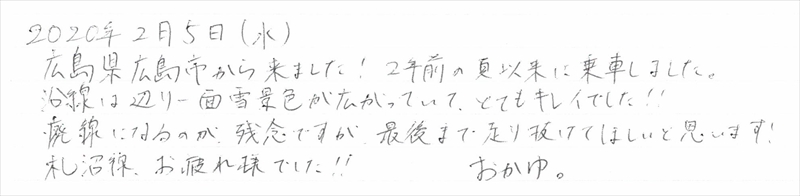 2020年2月5日(水)
広島県広島市から来ました! 2年前の夏以来に乗車しました。
沿線は辺り一面雪景色が広がっていて、とてもキレイでした!!
廃線になるのが、残念ですが、最後まで走り抜けてほしいと思います!
札沼線、お疲れ様でした!! おかゆ。